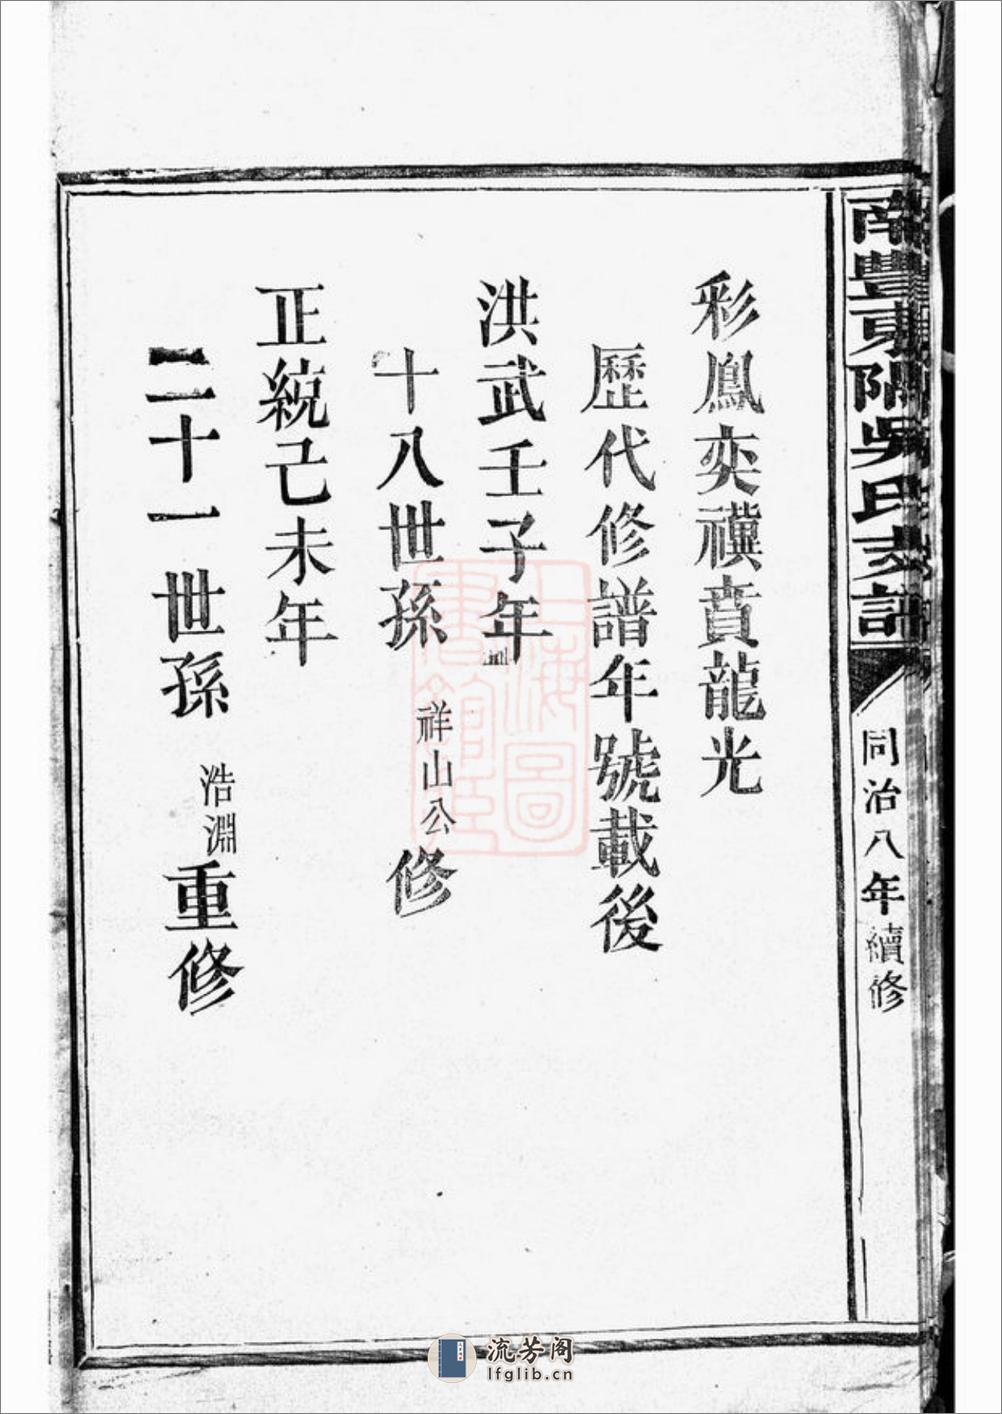 南豐東隅吳氏支譜
同治八年續修
彩鳳奕禩賁龍光
歷代修譜年號載後
洪武壬子年
十八世孫祥山公修
正統己未年
二十一世孫浩淵重修
上海圖書館藏
流芳阁
lfglib.cn